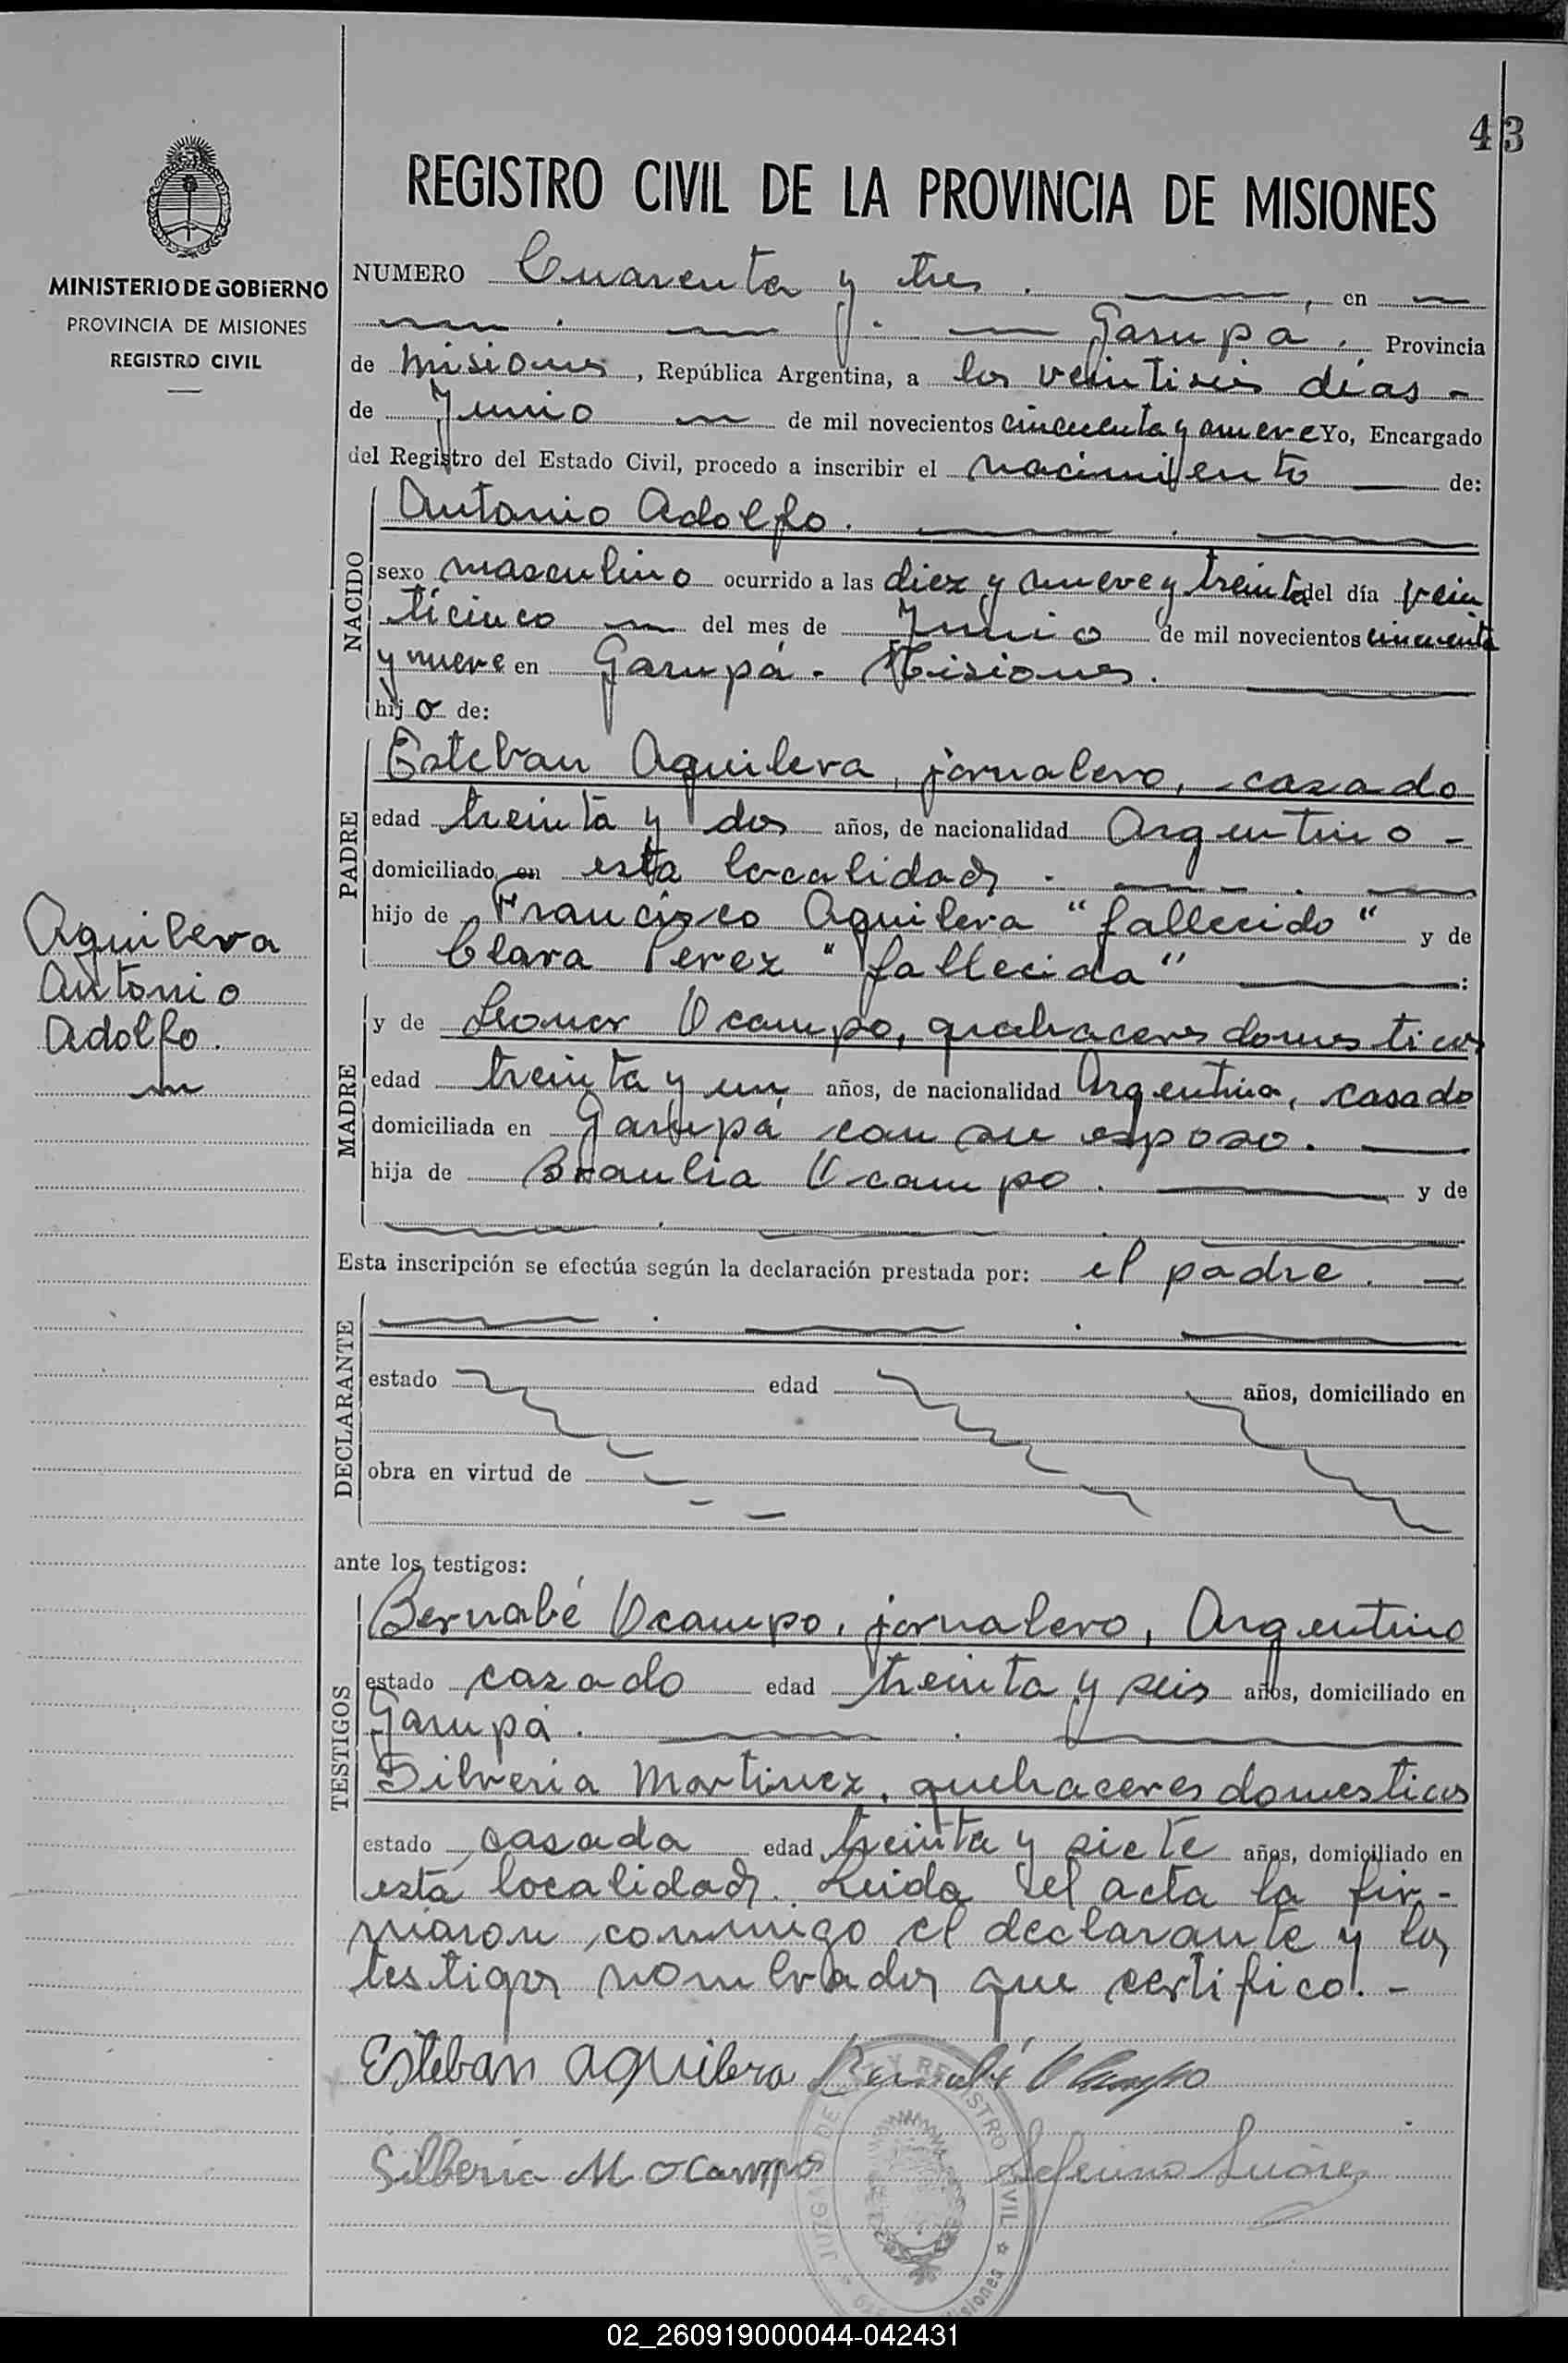 43
REGISTRO CIVIL DE LA PROVINCIA DE MISIONES
MINISTERIO DE GOBIERNO
PROVINCIA DE MISIONES
REGISTRO CIVIL
NUMERO Cuarenta y tres . , en
Garupa . Provincia
de Misiones , República Argentina, a los veintiseis días -
de Junio de mil novecientos cincuenta y nueve Yo, Encargado
del Registro del Estado Civil, procedo a inscribir el nacimiento de:
NACIDO
Antonio Adolfo .
sexo masculino ocurrido a las diez y nueve y treinta del día vein
ticinco del mes de Junio de mil novecientos cincuenta
y nueve en Garupá - Misiones .
hijo de:
PADRE
Esteban Aguilera, jornalero, casado
edad treinta y dos años, de nacionalidad Argentino -
domiciliado en esta localidad .
hijo de Francisco Aguilera "fallecido" y de
Clara Perez "fallecida" :
Aguilera
Antonio
Adolfo.
MADRE
y de Leonor Ocampo, quehaceres domesticos
edad treinta y un años, de nacionalidad Argentina, casado
domiciliada en Garupá con su esposo.
hija de Braulia Ocampo . y de
Esta inscripción se efectúa según la declaración prestada por: el padre. -
DECLARANTE
estado edad años, domiciliado en
obra en virtud de
ante los testigos:
TESTIGOS
Bernabé Ocampo, jornalero, Argentino
estado casado edad treinta y seis años, domiciliado en
Garupá .
Silveria Martinez, quehaceres domesticos
estado casada edad treinta y siete años, domiciliado en
esta localidad. Leida el acta la fir-
maron conmigo el declarante y los
testigos nombrados que certifico. -
Esteban Aguilera Bernabé Ocampo
Silberia M Ocampo Seferino Suárez
JUZGADO DE Y REGISTRO CIVIL
Misiones
02_260919000044-042431